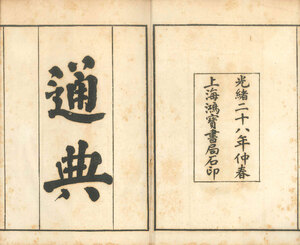 通典
光緒二十八年仲春
上海鴻寶書局石印